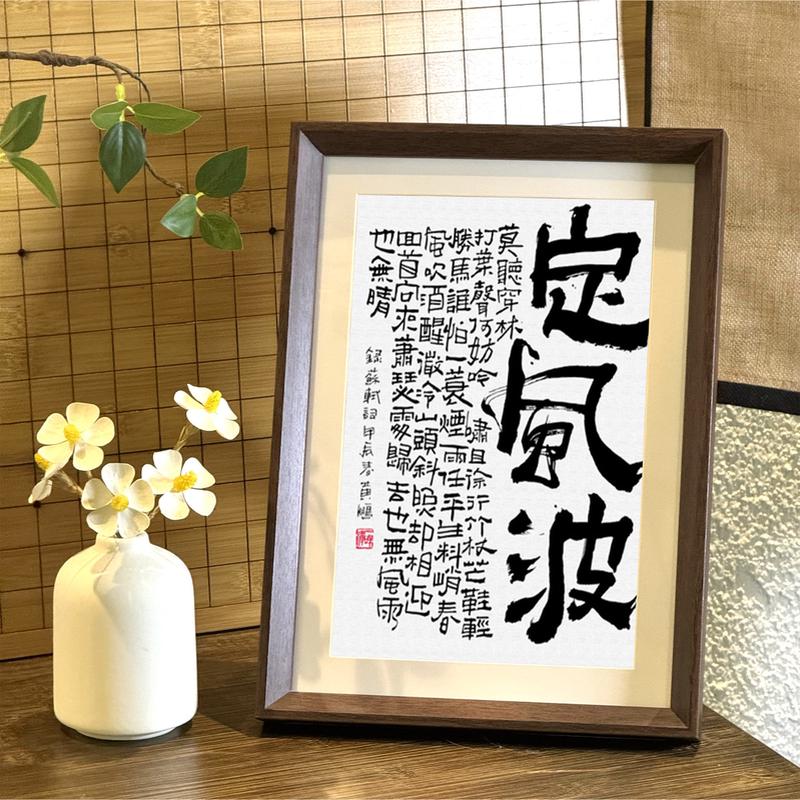 定風波
莫聽穿林
打葉聲何妨吟嘯且徐行竹杖芒鞋輕
勝馬誰怕一蓑煙雨任平生料峭春
風吹酒醒微冷山頭斜照却相迎
回首向來蕭瑟處歸去也無風雨
也無晴
錄蘇軾詞甲辰春黃鵬